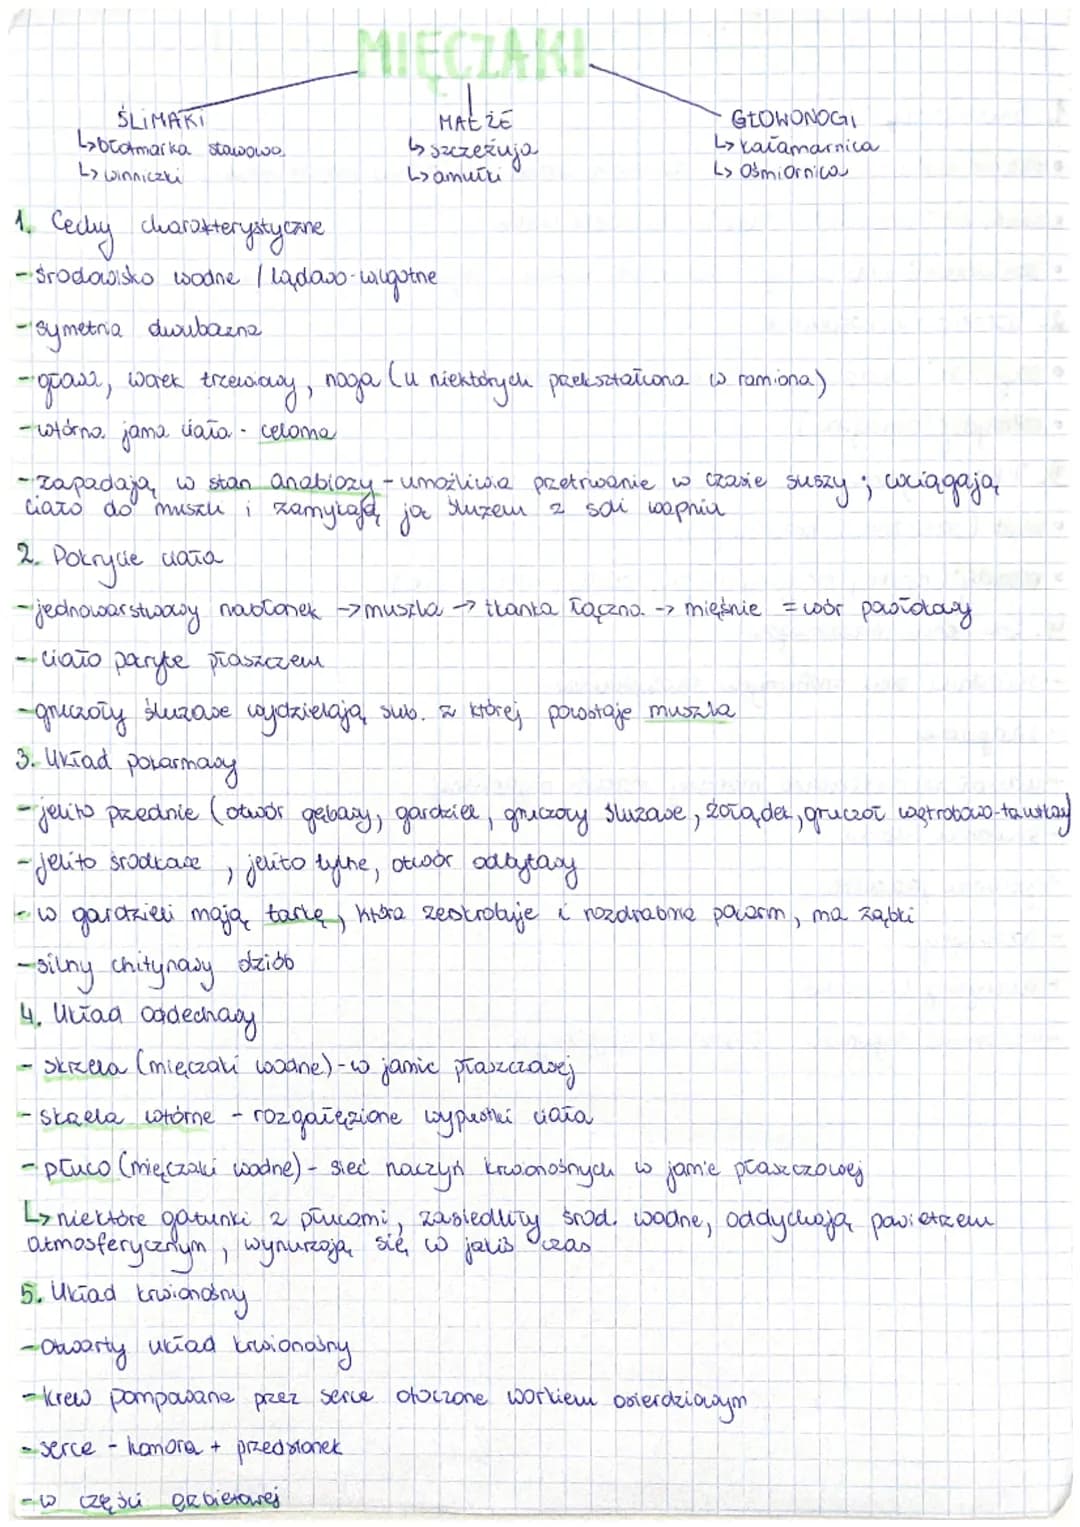 MIĘCZAKI
ŚLIMAKI
↳błotniarka stawowa
↳winniczki
MAŁŻE
↳szczeżuja
↳omułki
GŁOWONOGI
↳kałamarnica
↳ośmiornica
1. Cechy charakterystyczne
-środowisko wodne / lądowo-wilgotne
-symetria dwuboczna
-głowa, worek trzewiowy, noga (u niektórych przekształcona w ramiona)
-wtórna jama ciała - celoma
-zapadają w stan anabiozy - umożliwia przetrwanie w czasie suszy ; wciągają
ciało do muszli i zamykają ją śluzem z soli wapnia
2. Pokrycie ciała
-jednowarstwowy nabłonek -> muszla -> tkanka łączna -> mięśnie = wór powłokowy
-ciało pokryte płaszczem
-gruczoły śluzowe wydzielają sub. z której powstaje muszla
3. Układ pokarmowy
-jelito przednie (otwór gębowy, gardziel, gruczoły śluzowe, żołądek, gruczoł wątrobowo-trzustkowy)
-jelito środkowe, jelito tylne, otwór odbytowy
-w gardzieli mają tarkę, która zeskrobuje i rozdrabnia pokarm, ma ząbki
-silny chitynowy dziób
4. Układ oddechowy
- skrzela (mięczaki wodne) - w jamie płaszczowej
- skrzela wtórne - rozgałęzione wypustki ciała
- płuco (mięczaki wodne) - sieć naczyń krwionośnych w jamie płaszczowej
↳niektóre gatunki z płucami, zasiedliły środ. wodne, oddychają powietrzem
atmosferycznym, wynurzają się co jakiś czas
5. Układ krwionośny
-otwarty układ krwionośny
-krew pompowana przez serce otoczone workiem osierdziowym
-serce - komora + przedsionek
-w części grzbietowej